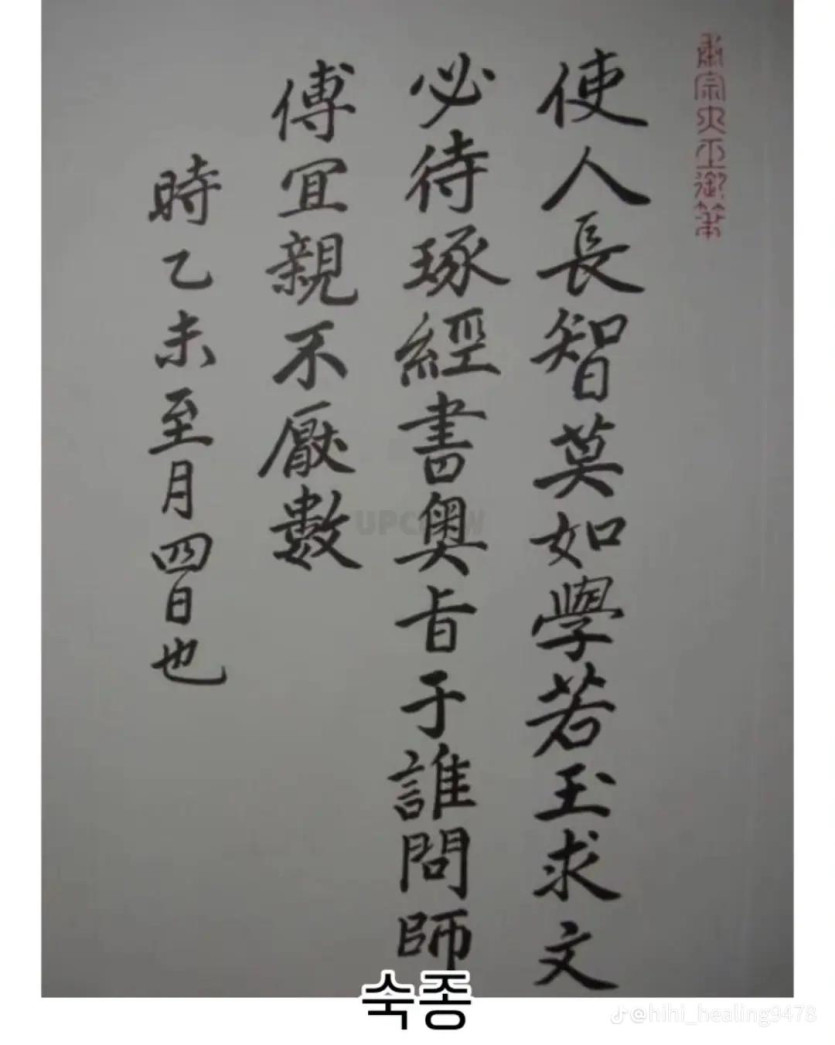 肅宗大王御筆
使人長智莫如學若玉求文
必待琢經書奧旨于誰問師
傅宜親不厭數
時乙未至月四日也
숙종
@hihi_healing9478